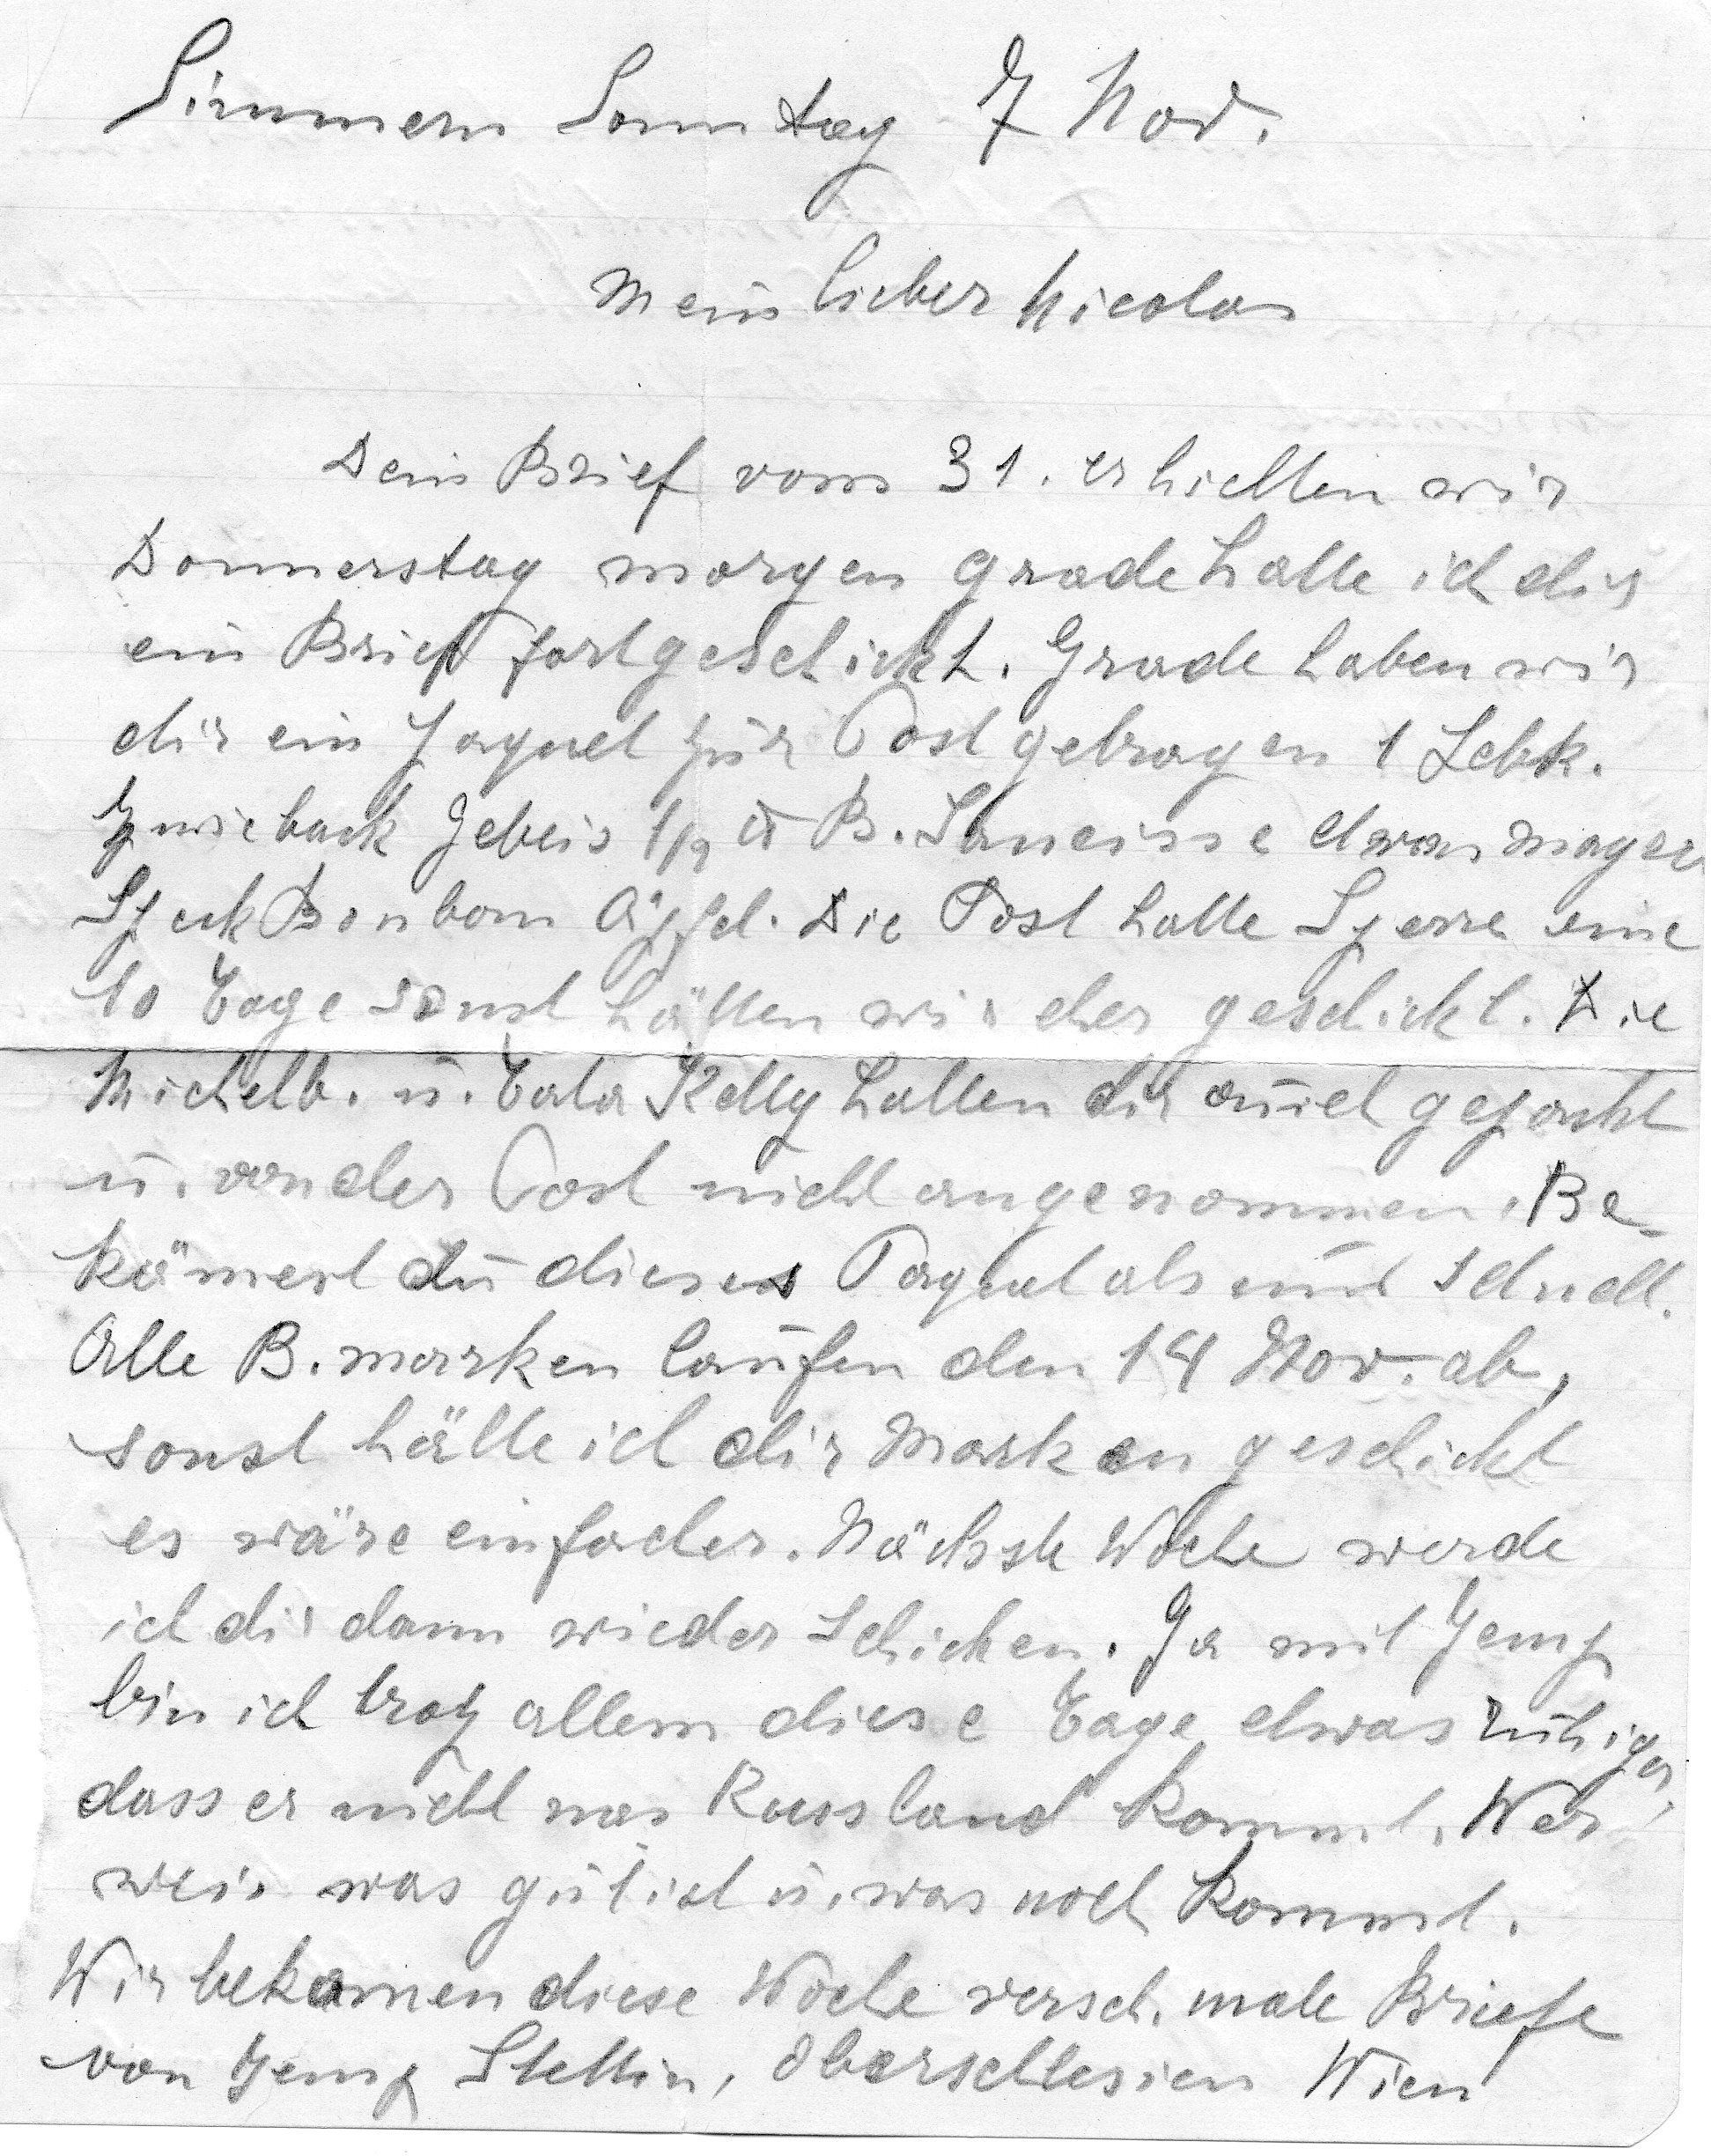 Simmern Sonntag 7 Nov.
Mein lieber Nicolas
Dein Brief vom 31. erhielten wir
Donnerstag morgen grade hatte ich dir
ein Brief fortgeschickt. Grade haben wir
dir ein Paquet zur Post getragen 1 Lebk.
Zwieback Gebeis 1/2 ℔ B. etwas mager
Speck Bonbom Äpfel. Die Post hatte Sperre eine
10 Tage sonst hätten wir eher geschickt. Die
Michelb. u. Tata Ketty hatten dir auch gepackt
u. von der Post nicht angenommen. Be-
kömerst du dieses Paquet als nur schnell.
Alle B. marken laufen den 14 Nov. ab,
sonst hätte ich dir Marken geschickt
es wäre einfacher. Nächste Woche werde
ich dir dann wieder schicken. Ja mit Jemp
bin ich trotz allem diese Tage etwas ruhiger,
dass er nicht nas Russland kommt. Wer
weis was gut ist u. was noch kommt.
Wir bekamen diese Woche versch. male Briefe
von Jemp Stettin, Oberschlesien Wien